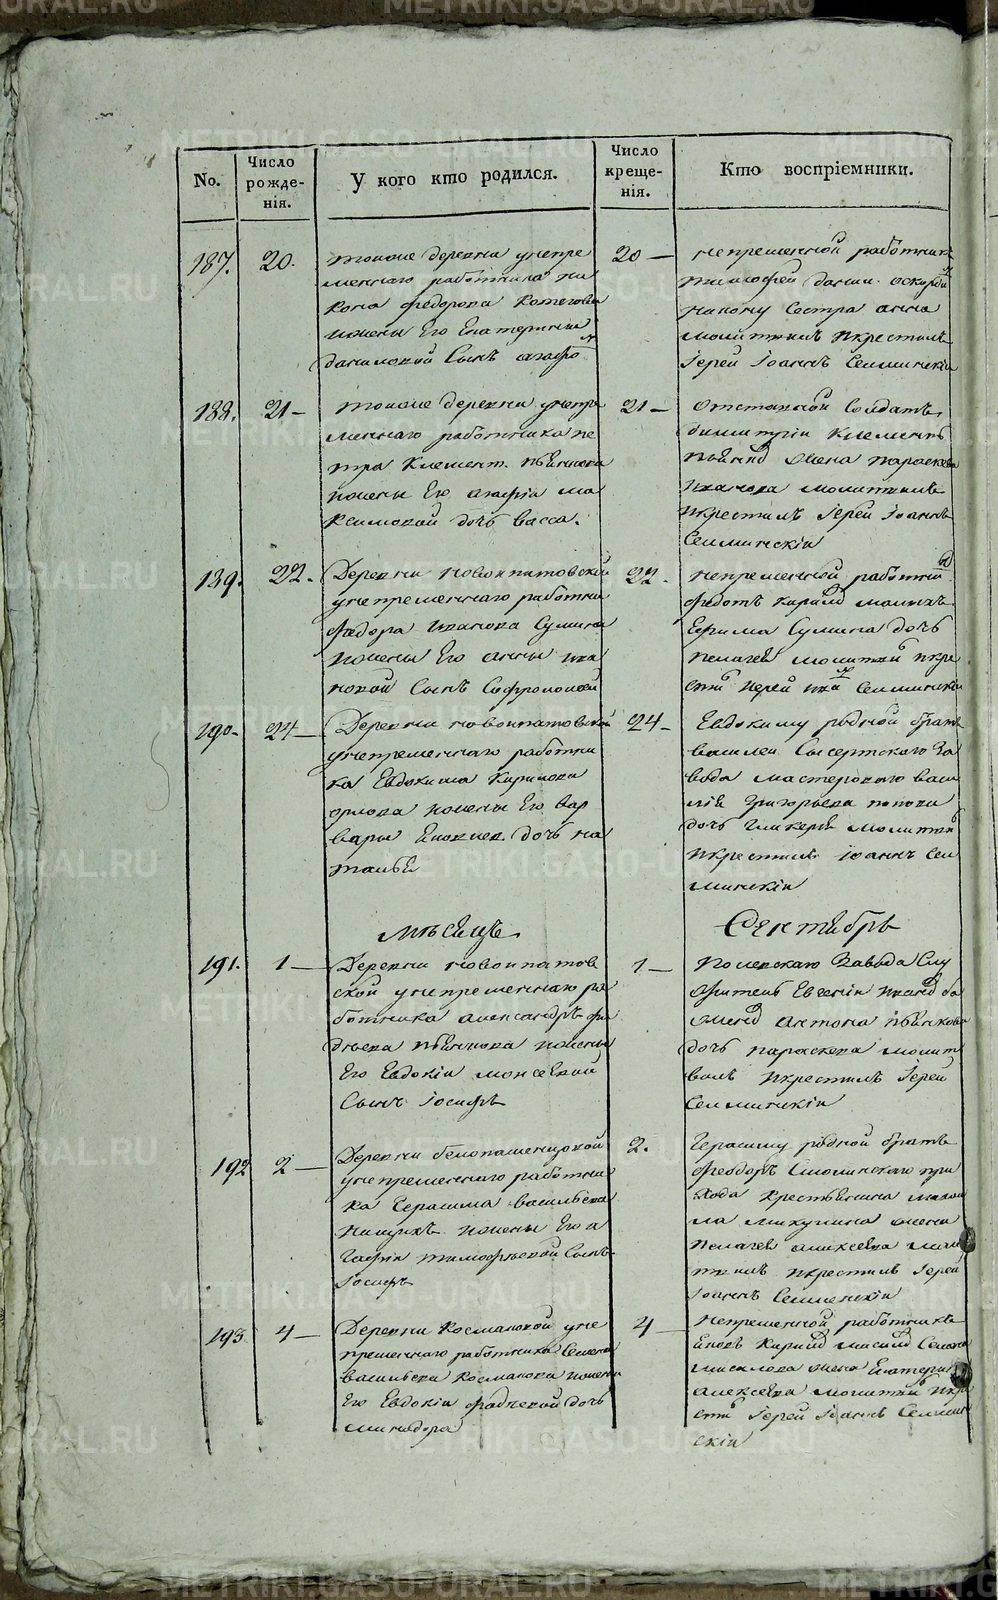 No.
Число рожденія.
У кого кто родился.
Число крещенія.
Кто воспріемники.
187.
20.
тойже деревни унепре
меннаго работника ни
кона федорова
жены Его Екатерины
даниловой Сынъ агафо
20 —
непременной работник
тимофей данил.
никону Сестра анна
молитвилъ икрестилъ
Іерей Іоаннъ Селминскій
188.
21 —
тойже деревни унепре
меннаго работника пе
тра Клемент. пьянкова
жены Его агафіи ма
ксимовой дочь васса.
21 —
Отставной Солдатъ
димитрій Клементь
жена параскева
иванова молитвилъ
икрестилъ Іерей Іоаннъ
Селминскіи
189.
22.
Деревни новоипатовской
унепременнаго работни
федора иванова Сумина
жены Его анны ива
новой Сынъ Софроломей
22.
непременной работни
федотъ Кирил
Ефима Сумина дочь
пелагея молитвил икре
стил Іерей ива Селминскіи
190.
24 —
Деревни новоипатовской
унепременнаго работни
ка Евдокима Кирилова
орлова жены Его вар
вары дочь на
талья
24 —
Евдокиму родной братъ
василей Сысертскаго За
вода мастероваго васи
лія Григорьева попова
дочь гликерія молитви
икрестилъ іоаннъ Сел
минскіи
мѣсяцъ
Сентябрь
191.
1 —
Деревни новоипатов
ской унепременнаго ра
ботника александръ фа
дѣева пьянкова жены
Его Евдокіи моисеевой
Сынъ Іосифъ
1 —
Полевскаго Завода Слу
житель Евгеніи
антона пьянкова
дочь параскева молит
вилъ икрестилъ Іерей
Селминскіи
192
2 —
Деревни
унепременнаго работни
ка Герасима васильева
жены Его а
гафіи тимофѣевой Сынъ
Іосифъ
2.
Герасиму родной братъ
феодоръ при
хода Крестьянина
ла микулина жена
пелагея алексѣева моли
твилъ икрестилъ Іерей
Іоаннъ Селменскіи
193.
4 —
Деревни Космаковой уне
пременнаго работника Семена
васильева Космакова жены
Его Евдокіи фадеевой дочь
минодора
4 —
непременной работникъ
Яковъ Кирил Семена
жена Екатерин
алексѣева молитвил икре
стил Іерей Іоаннъ Селмин
скіи
METRIKI.GASO-URAL.RU